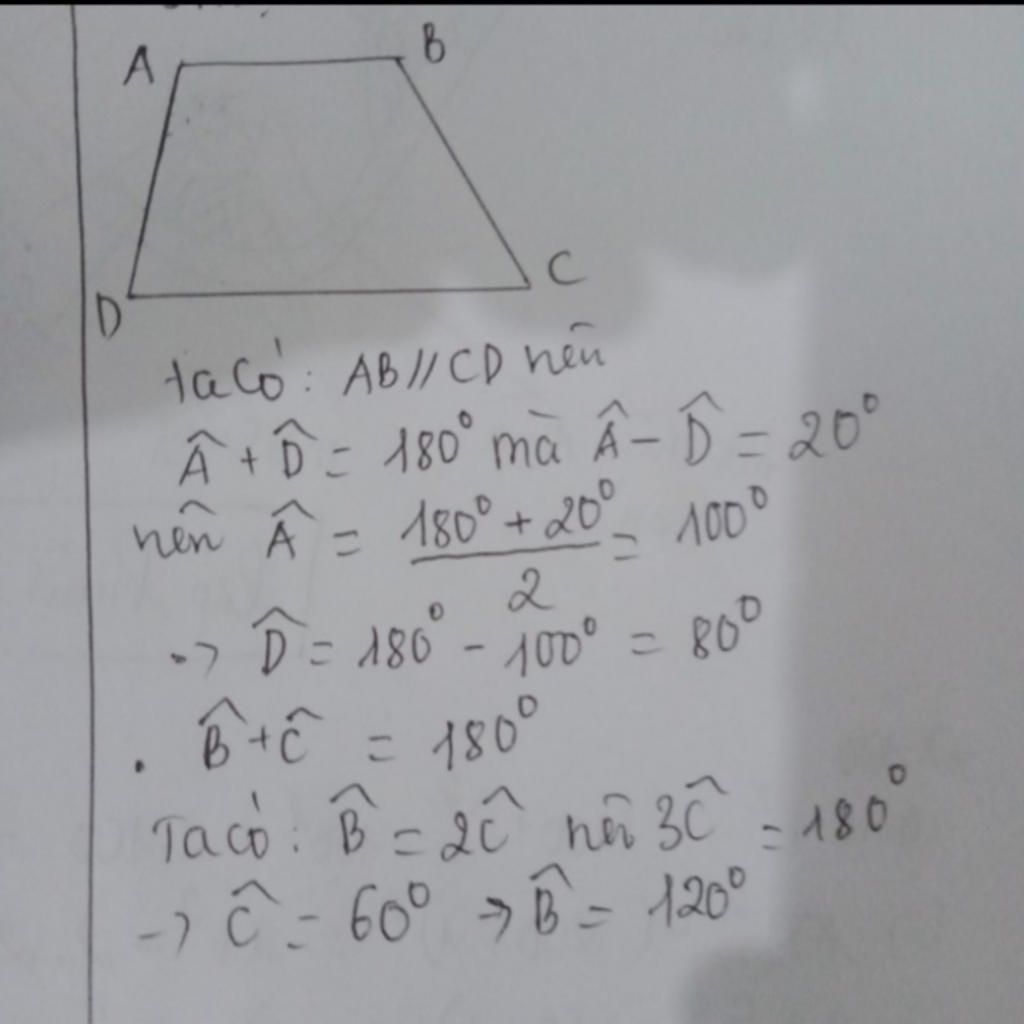 A
B
C
D
Ta có: AB//CD nên
Â + D̂ = 180° mà Â - D̂ = 20°
nên Â = (180° + 20°)/2 = 100°
-> D̂ = 180° - 100° = 80°
. B̂ + Ĉ = 180°
Ta có: B̂ = 2Ĉ nên 3Ĉ = 180°
-> Ĉ = 60° -> B̂ = 120°